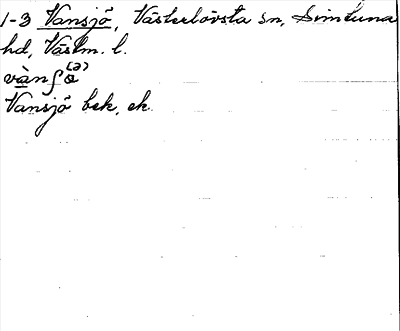 1-3 Vansjö, Västerlövsta sn, Simtuna
hd, Västm. l.
vànʃö(ə)
Vansjö bek, ek